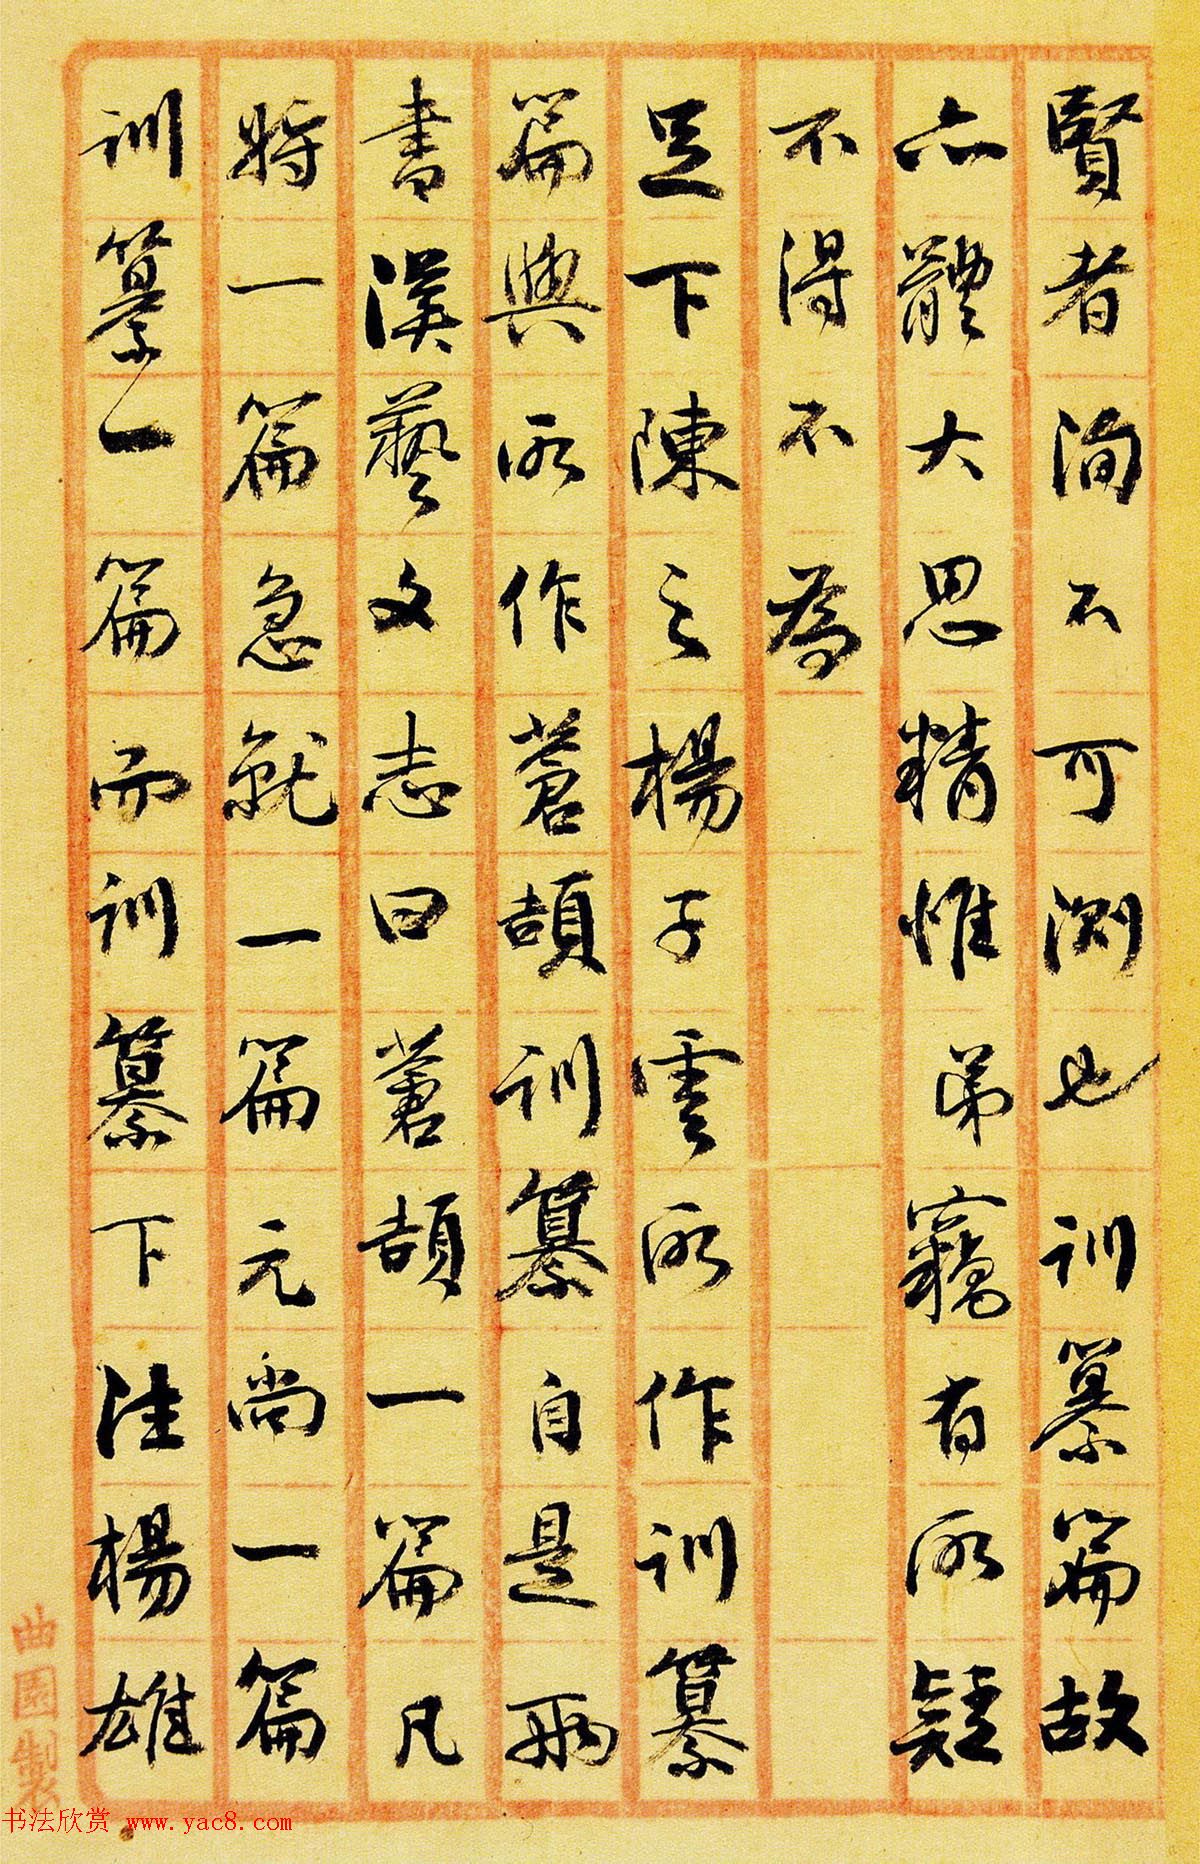 賢者洵不可測也訓纂篇故
亦體大思精惟弟竊有所疑
不得不為
足下陳之楊子雲所作訓纂
篇與所作蒼頡訓纂自是兩
書漢藝文志曰蒼頡一篇凡
將一篇急就一篇元尚一篇
訓纂一篇而訓纂下注楊雄
曲園製
书法欣赏 www.yac8.com